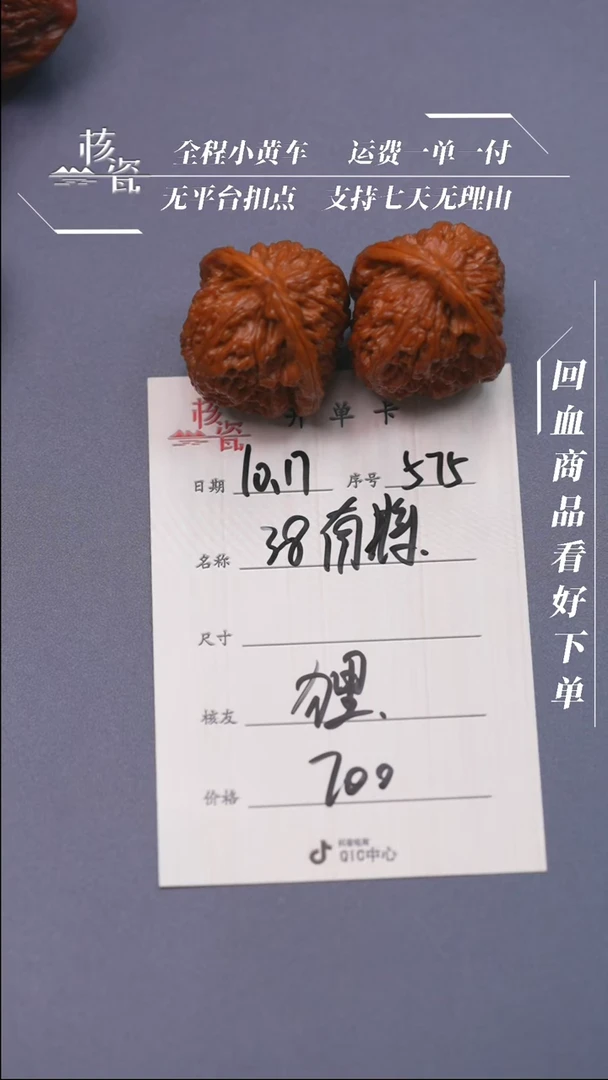 核瓷
全程小黄车 运费一单一付
无平台扣点 支持七天无理由
回血商品看好下单
核瓷
单卡
日期 10.17 序号 575
名称 38南
尺寸
核友
价格 700
抖音电商
QIC中心